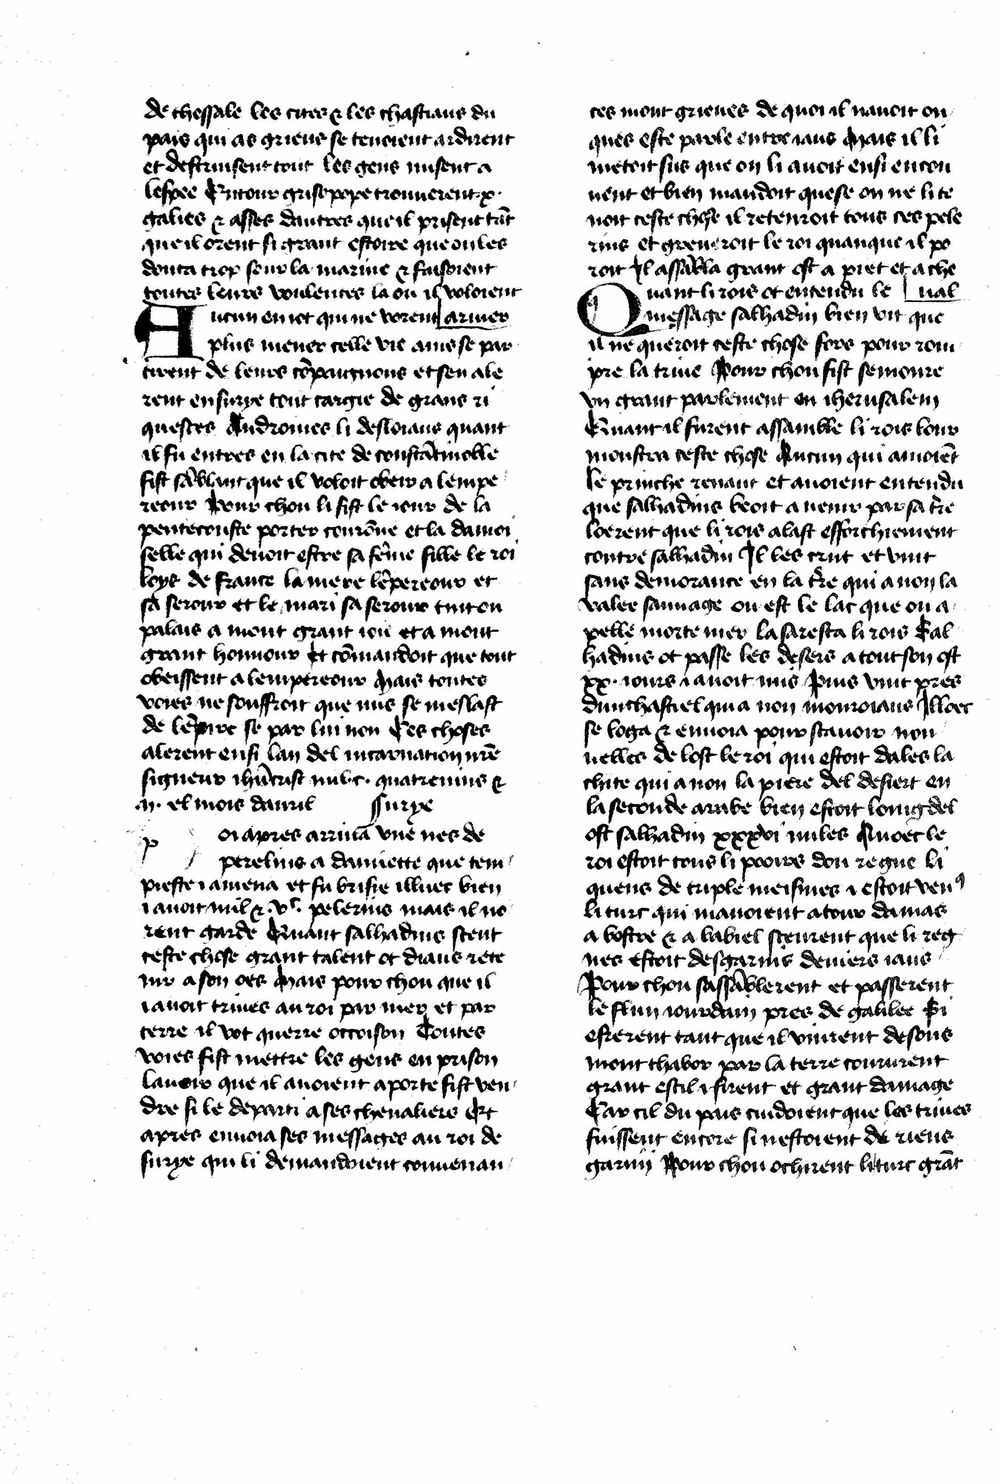 de thessale les cites & les chastiaus du
pais qui as grieus se tenoient ardirent
et destruisent tout les gens misent a
lespee Entour grisepope trouuerent .x.
galies & asses dautres que il prisent tāt
que il orent si grant estoire que on les
douta trop seur la marine & faisoient
toutes leurs voulentes la ou il voloient
Aucun en iot qui ne vorent ariuer
plus mener celle vie ains se par
tirent de leurs cōpaignons et sen ale
rent en surye tout cargie de grans ri
queces Andronies li desloiaus quant
il fu entres en la cite de constātinoble
fist sāblant que il voloit obeir a lempe
reour Pour chou li fist le iour de la
pentecouste porter courōne et la damoi
selle qui deuoit estre sa fēme fille le roi
loys de france la mere lēpereour et
sa serour et le mari sa serour tint ou
palais a mont grant iou et a mont
grant honnour Et cōmandoit que tout
obeissent a lempereour Mais toutes
voies ne souffroit que nus se meslast
de lēpire se par lui non Ces choses
alerent ensi lan del incarnation nrē
signeur ihūcrist mil .c. quatreuins &
.ij. el mois dauril Surye
p oi apres arriua vne nes de
pelerins a damiette que tem
pieste i amena et fu brisie illuec bien
i auoit mil & .vc. pelerins mais il ne
rent garde Quant salhadins scent
ceste chose grant talent ot diaus rete
nir a son oes Mais pour chou que il
i auoit triues au roi par mer et par
terre il vot querre occoison Toutes
voies fist mettre les gens en prison
lauoir que il auoient aporte fist ven
dre si le departi a ses cheualiers Et
apres enuoia ses messages au roi de
surye qui li demandoient conuenan
ces mont grieues de quoi il nauoit on
ques este parle entre iaus Mais il li
metoit sus que on li auoit ensi encou
uent et bien mandoit que se on ne li te
noit ceste chose il retenroit tous ces pele
rins et greueroit le roi quanque il po
roit Il assāla grant ost a piet et a che
Quant li rois ot entendu le ual
message salhadin bien vit que
il ne queroit ceste chose fors pour rom
pre la triue Pour chou fist semonre
vn grant parlement en iherusalem
Quant il furent assamble li rois lour
monstra ceste chose Aucun qui amoiēt
le prinche renaut et auoient entendu
que salhadins beoit a uenir par sa tr̄e
loerent que li rois alast efforchiement
contre salhadin Il les crut et vint
sans demorance en la tr̄e qui a non la
valee sauuage ou est le lac que on a
pelle morte mer la saresta li rois Sal
hadins ot passe les desers a tout son ost
xx. iours i auoit mis Puis vint pres
dun chastiel qui a non monroiaus Illoec
se loga & enuoia pour scauoir nou
uelles de lost le roi qui estoit dales la
chite qui a non la piere del desiert en
la seconde arabe bien estoit loing del
ost salhadin xxxvi miles Auoec le
roi estoit tous li pooirs dou regne li
quens de triple meismes i estoit venꝰ
li turc qui manoient atour damas
a bostre & a babiel sceurent que li reg
nes estoit desgarnis deuiers iaus
Pour chou sassāblerent et passerent
le flun iourdain pres de galilee Si
errerent tant que il vinrent desous
mont thabor par la terre coururent
grant escil i firent et grant damage
Car cil du pais cuidoient que les triues
fuissent encore si nestoient de riens
garni Pour chou ochirent li turc grāt